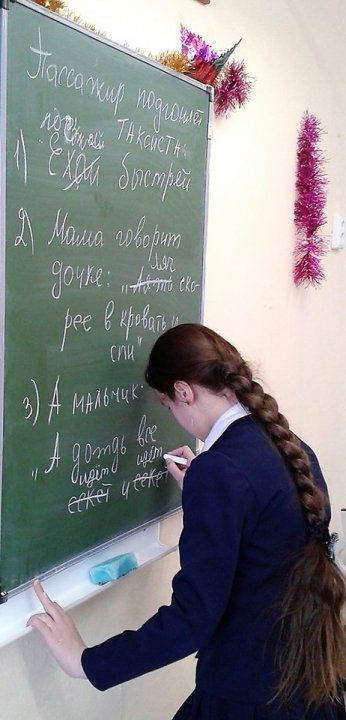 Пассажир подгоняет
таксиста
поезжай
1) Ехай быстрей
2) Мама говорит
ляг
дочке: "Лять ско-
рее в кровать и
спи"
3) А мальчик-
"А дождь все
идёт идёт
ссект и ссект